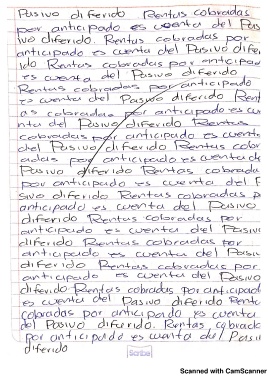 Pasivo diferido Rentas cobradas
por anticipado es cuenta del Pas
ivo diferido. Rentas cobradas por
anticipado es cuenta del Pasivo dife,
rido Rentas cobradas por anticipad
es cuenta del Pasivo diferido
Rentas cobradas por anticipado
es cuenta del Pasivo diferido Rent
as cobradas por anticipado es cu
nta del Pasivo diferido Rentas
cobradas por anticipado es cuenta
del Pasivo diferido Rentas cobr
adas por anticipado es cuenta de
Pasivo diferido Rentas cobrada
por anticipado es cuenta del P
sivo diferido Rentas cobradas p
anticipado es cuenta del Pasivo
diferido Rentas cobradas por
anticipado es cuenta del Pasivo
diferido Rentas cobradas por
anticipado es cuenta del Pasiv
diferido Rentas cobradas por
anticipado es cuenta del Pasivo
diferido Rentas cobradas por anticipad
es cuenta del Pasivo diferido Renta
cobradas por anticipado es cuenta
del Pasivo diferido. Rentas cobrada
por anticipado es cuenta del Pasiv
diferido
Scribe
Scanned with CamScanner